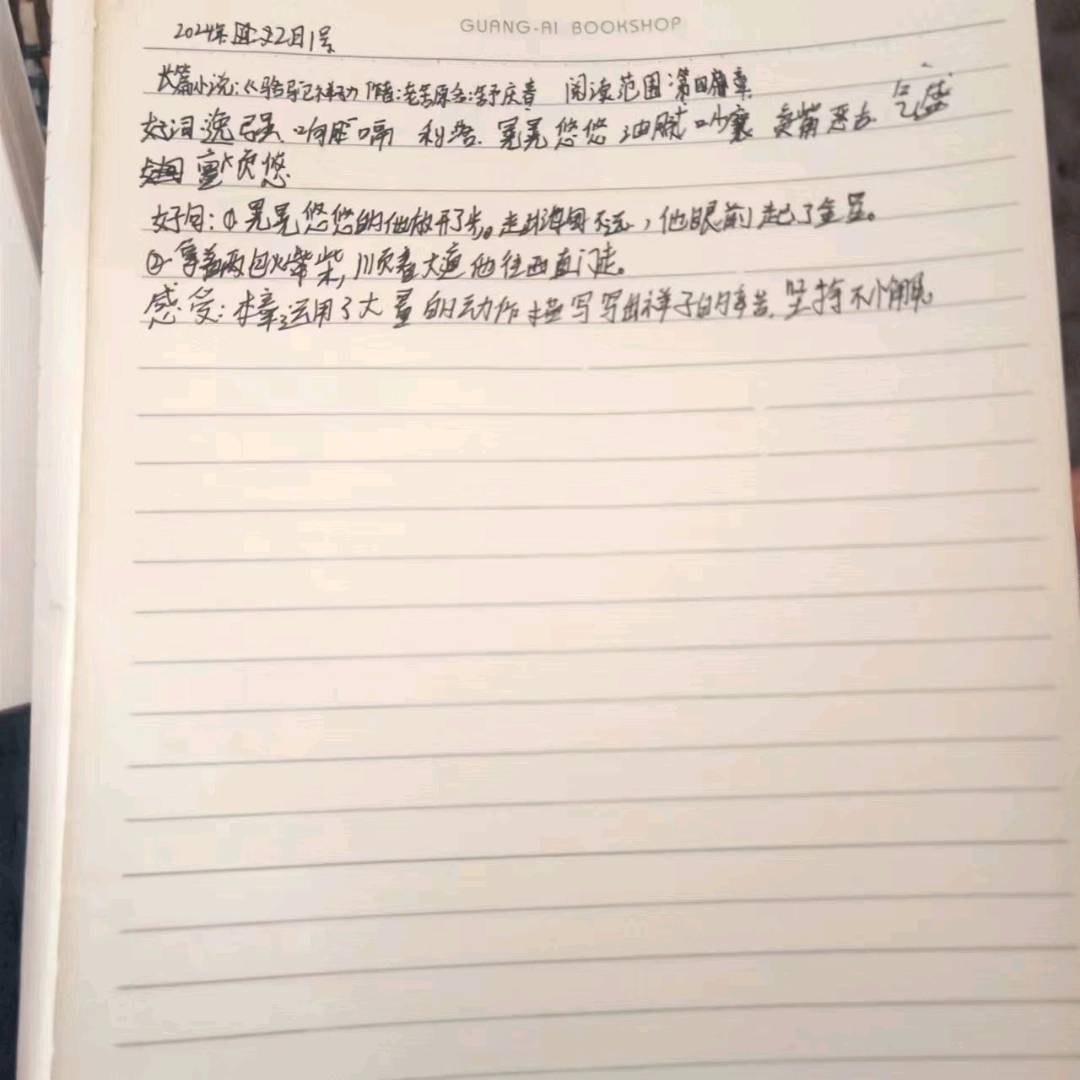 GUANG-AI BOOKSHOP
2024年 2日1号
长篇小说:《骆驼祥子》作者:老舍原名:舒庆春 阅读范围:第四章
好词逞强 利落 晃晃悠悠 油腻 叫嚷 卖菊 气盛
好句:①晃晃悠悠的他放开了步。走出海甸不远,他眼前起了金星。
②拿着两包火柴,顺着大道他往西直门走。
感受:本章运用了大量的动作描写写出祥子的辛苦,坚持不懈。